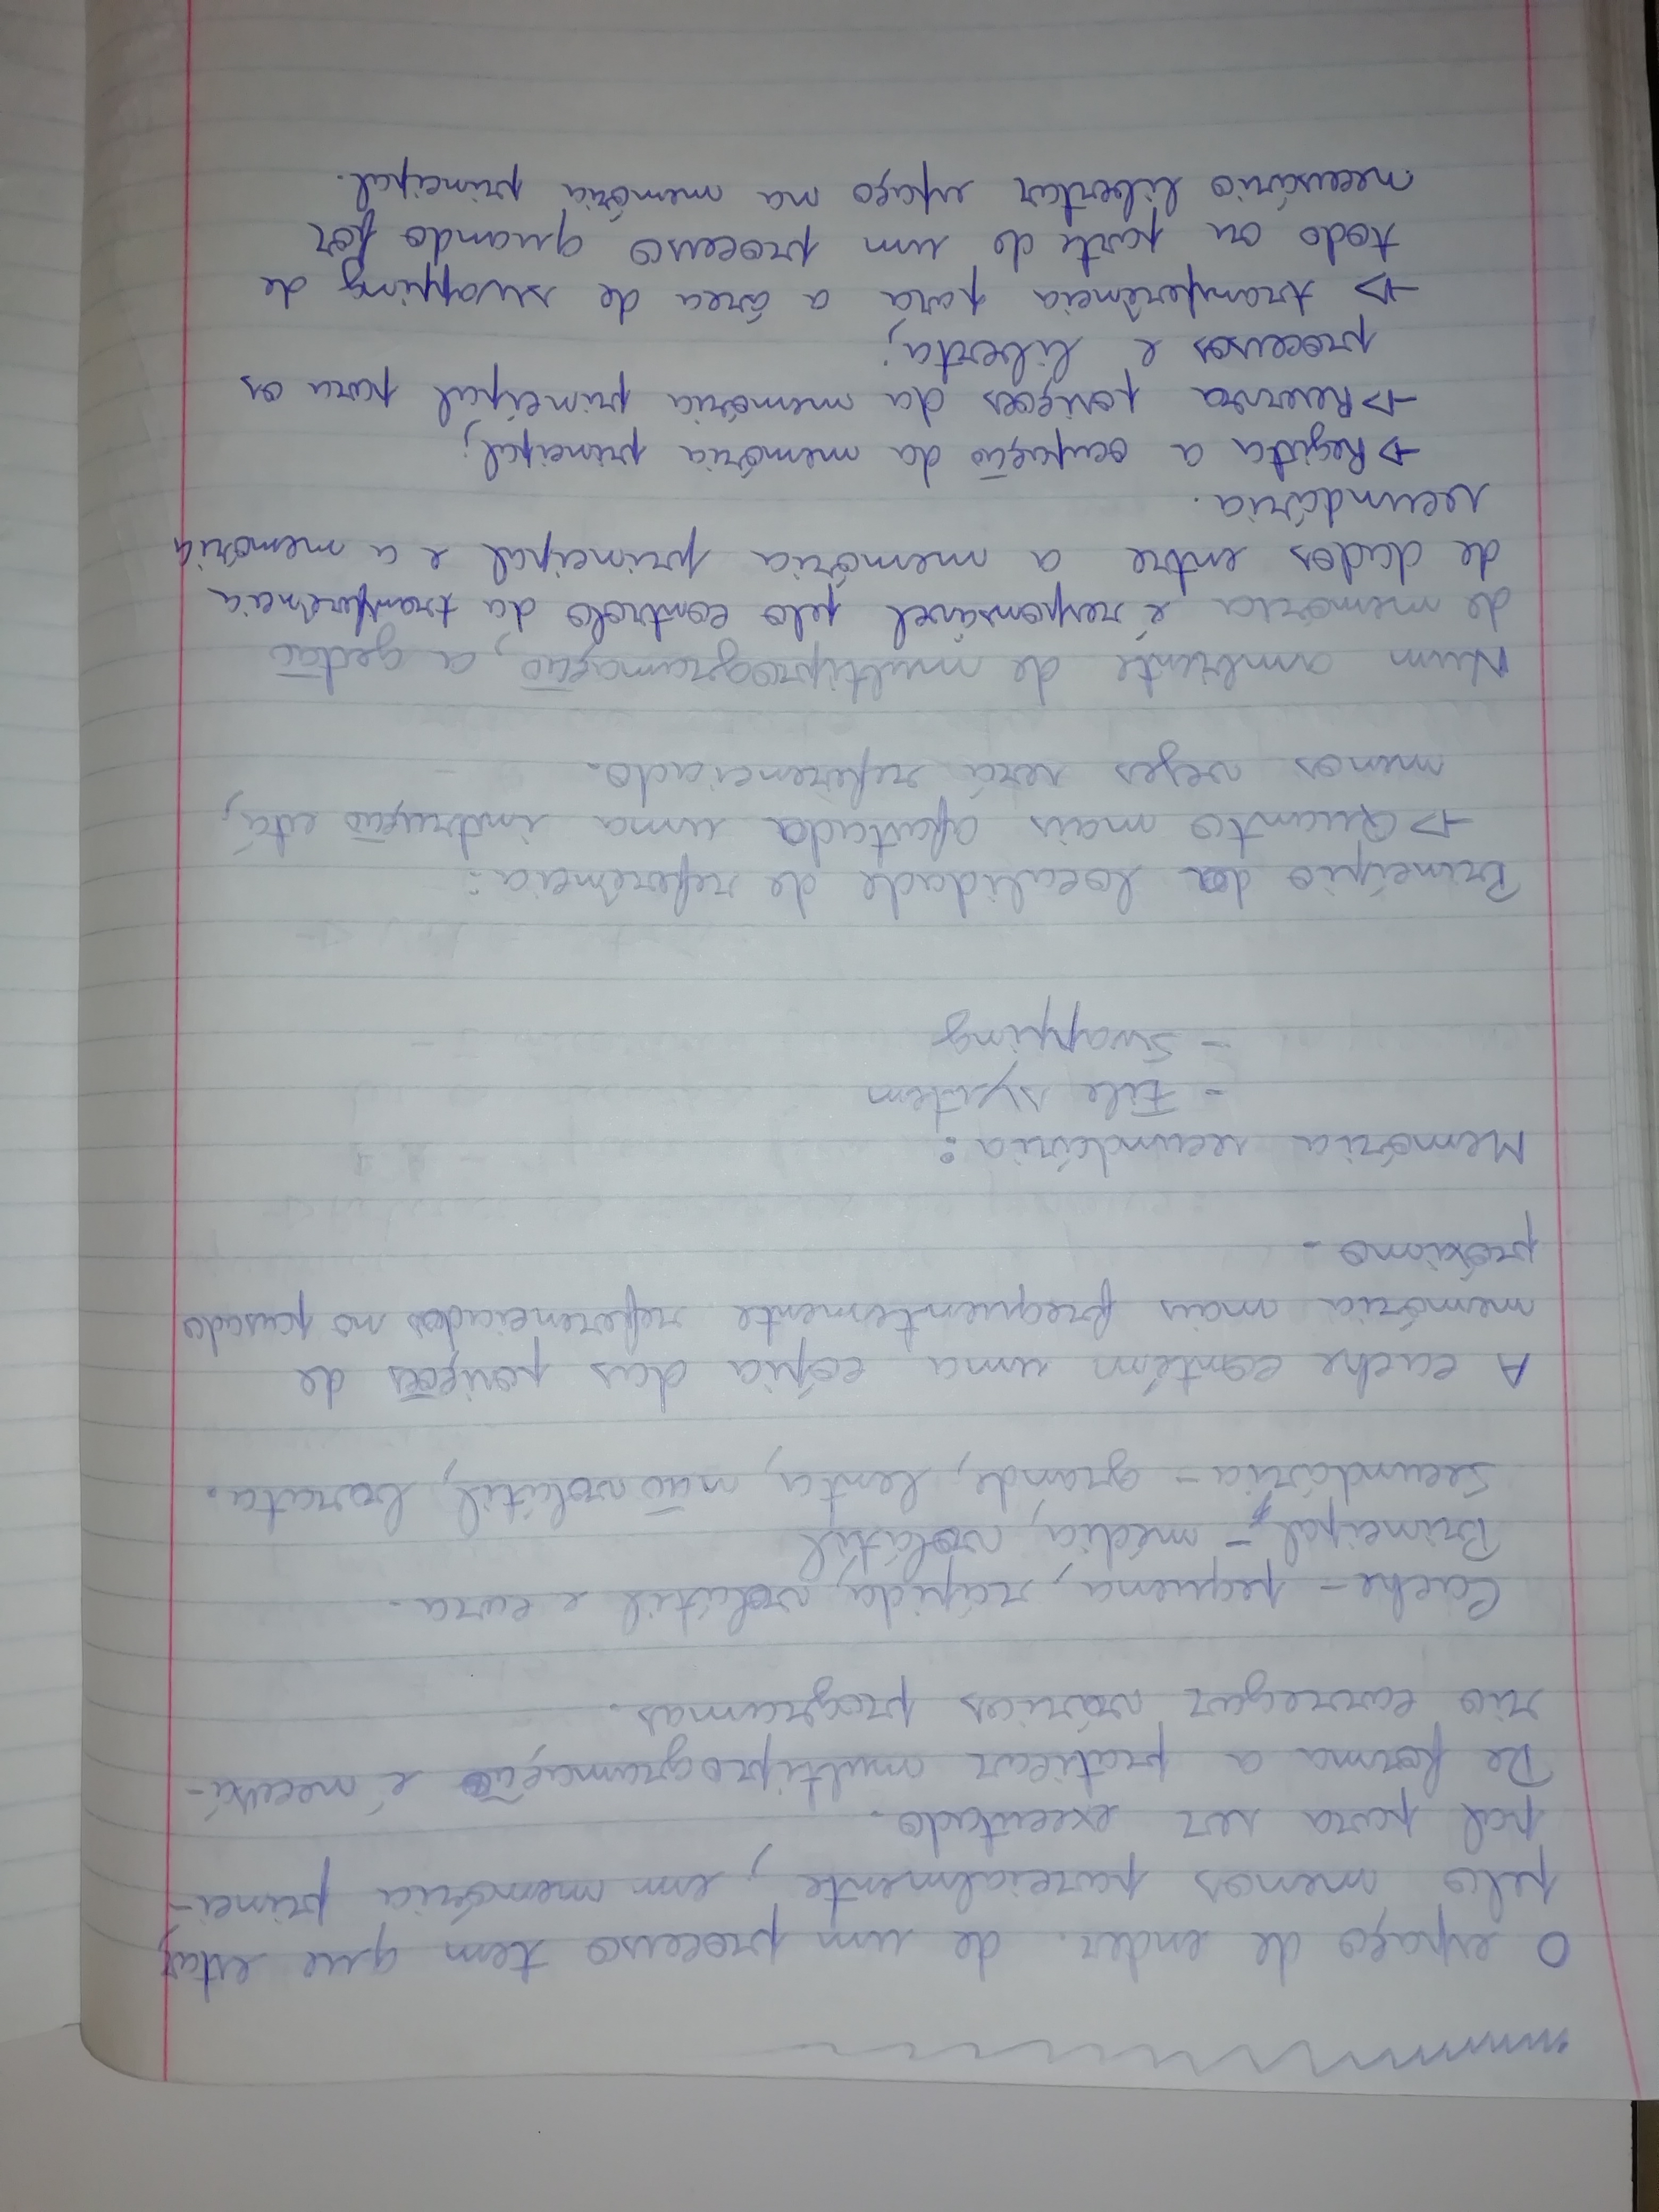 O espaço de ender. de um processo tem que estar,
pelo menos parcialmente, em memória princi-
pal para ser executado.
De forma a praticar multiprogramação é necessá-
rio carregar vários programas.
Cache - pequena, rápida, volátil e cara.
Principal - média, volátil
Secundária - grande, lenta, não volátil, barata.
A cache contém uma cópia das posições de
memória mais frequentemente referenciados no passado
próximo.
Memória secundária:
- File system
- Swapping
Princípio da localidade de referência:
→ Quanto mais afastada uma instrução está,
menos vezes será referenciado.
Num ambiente de multiprogramação, a gestão
de memória é responsável pelo controlo da transferência
de dados entre a memória principal e a memória
secundária.
→ Regista a ocupação da memória principal;
→ Reserva posições da memória principal para os
processos e liberta;
→ transferência para a área de swapping de
todo ou parte de um processo quando for
necessário libertar espaço na memória principal.